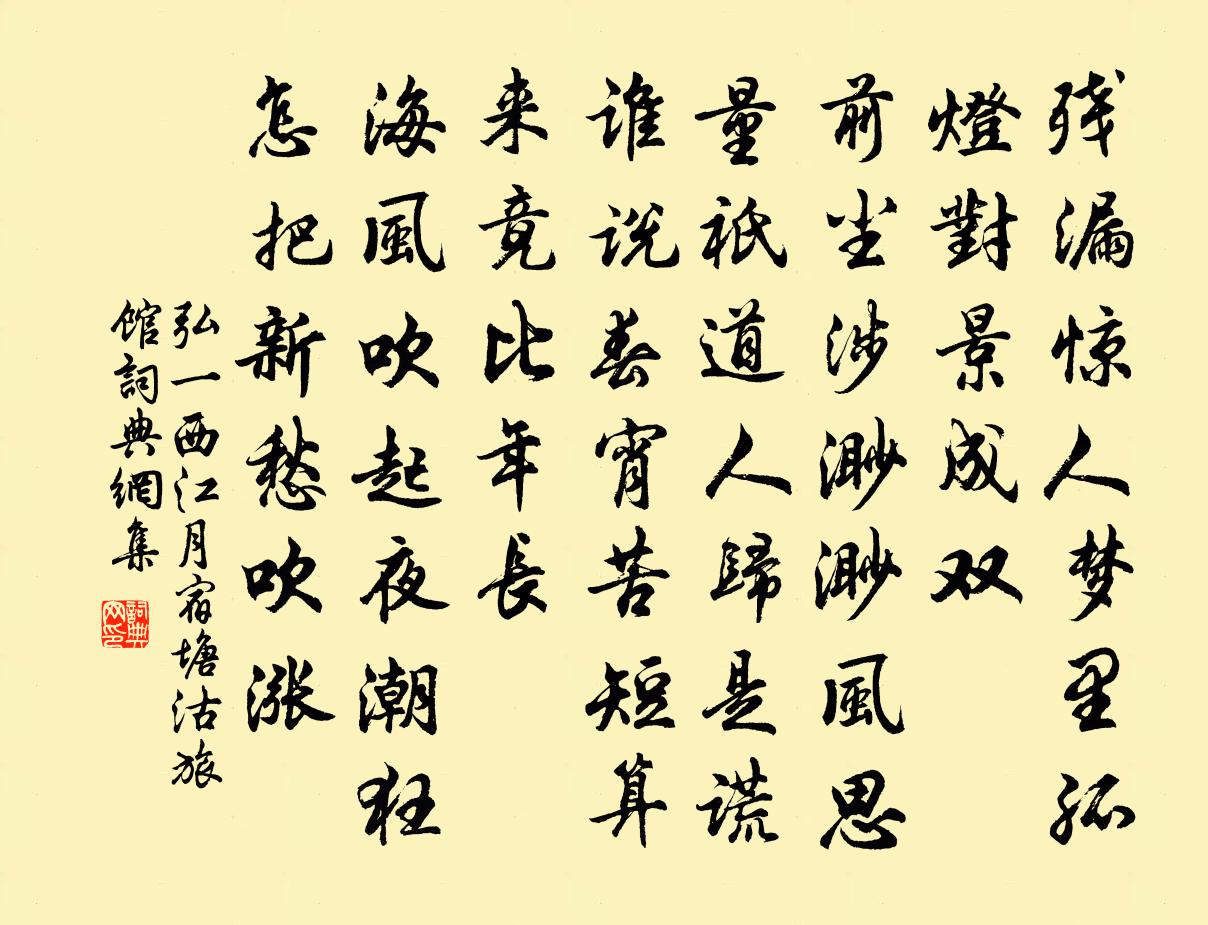 残漏惊人梦里孤
燈對景成双
前尘涉渺渺風思
量祇道人歸是谎
谁说春宵苦短算
来竟比年长
海風吹起夜潮狂
怎把新愁吹涨
弘一西江月宿塘沽旅
馆詞典網集
詞典
网印